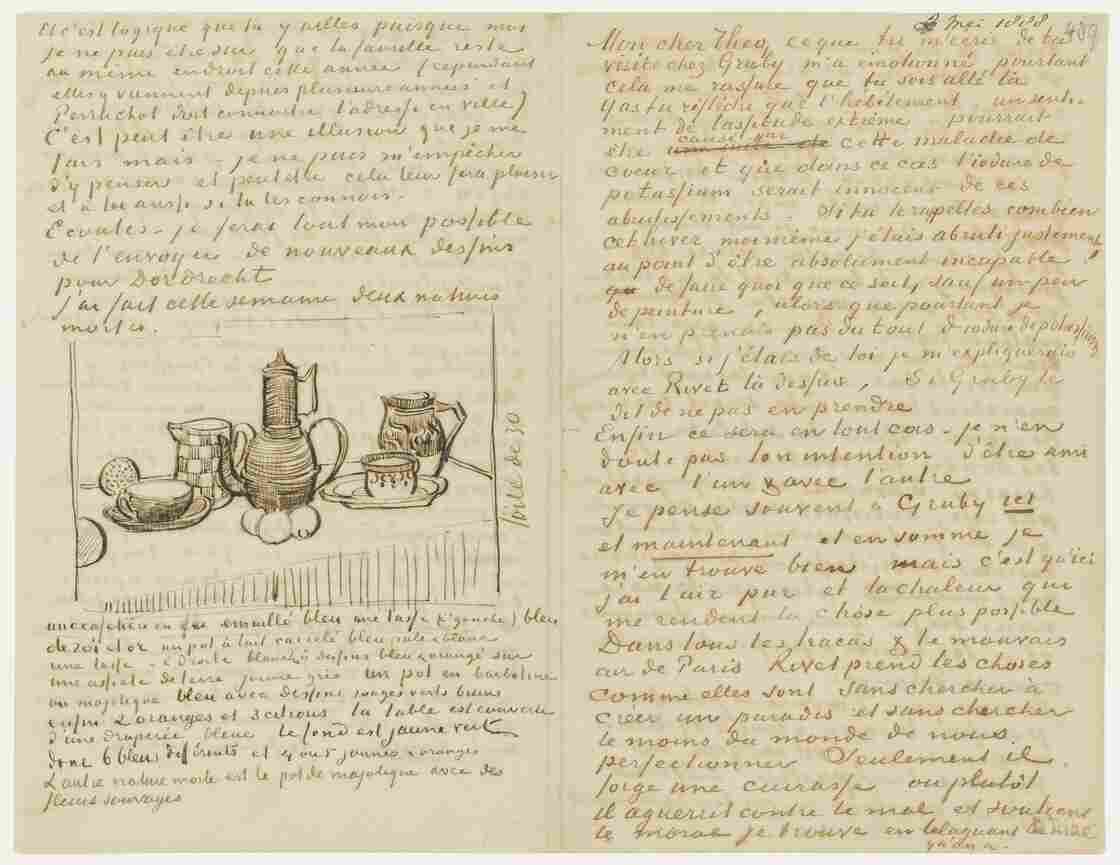 Et c'est logique que tu y ailles puisque moi
je ne puis être sûr que la famille reste
au même endroit cette année (cependant
elles y viennent depuis plusieures années et
Perruchot doit connaitre l'adresse en ville)
C'est peut être une illusion que je me
fais mais – je ne puis m'empêcher
d'y penser et peut être cela leur fera plaisir
et à toi aussi si tu les connais.
Ecoutes – je ferai tout mon possible
de t'envoyer de nouveaux dessins
pour Dordrecht
J'ai fait cette semaine deux natures
mortes.
toile de 30
une cafetière en fer emaillé bleu une tasse (à gauche) bleu
de roi et or un pot à lait carrelé bleu pâle & blanc
une tasse – à droite blanche à dessins bleu & orangé sur
une assiette de terre jaune gris un pot en barbotine
ou majolique bleu avec dessins rouges verts bruns
enfin 2 oranges et 3 citrons la table est couverte
d'une draperie bleue le fond est jaune vert
donc 6 bleus différents et 4 ou 5 jaunes & orangés
L'autre nature morte est le pot de majolique avec des
fleurs sauvages
Mei 1888
489
Mon cher Theo, ce que tu m'écris de ta
visite chez Gruby m'a émotionné pourtant
cela me rassure que tu sois allé là
Y as tu réfléchi que l'hébètement un senti-
ment de lassitude extrème – pourrait
être causé par cette maladie de
coeur et que dans ce cas l'iodure de
potassium serait innocent de ces
abrutissements. Si tu te rapelles combien
cet hiver moi même j'étais abruti justement
au point d'être absolument incapable
de faire quoi que ce soit, sauf un peu
de peinture, alors que pourtant je
n'en prenais pas du tout d'iodure de potassium
Alors si j'étais de toi je m'expliquerais
avec Rivet là dessus, si Gruby te
dit de ne pas en prendre
Enfin ce sera en tout cas – je n'en
doute pas ton intention d'être ami
avec l'un & avec l'autre
Je pense souvent à Gruby ici
et maintenant et en somme je
m'en trouve bien mais c'est qu'ici
j'ai l'air pur et la chaleur qui
me rendent la chose plus possible
Dans tous les tracas & le mauvais
air de Paris Rivet prend les choses
comme elles sont sans chercher à
créer un paradis et sans chercher
le moins du monde de nous
perfectionner Seulement il
forge une cuirasse ou plutôt
il aguerrit contre le mal et soutient
le moral je trouve en blaguant le mal
qu'on a.